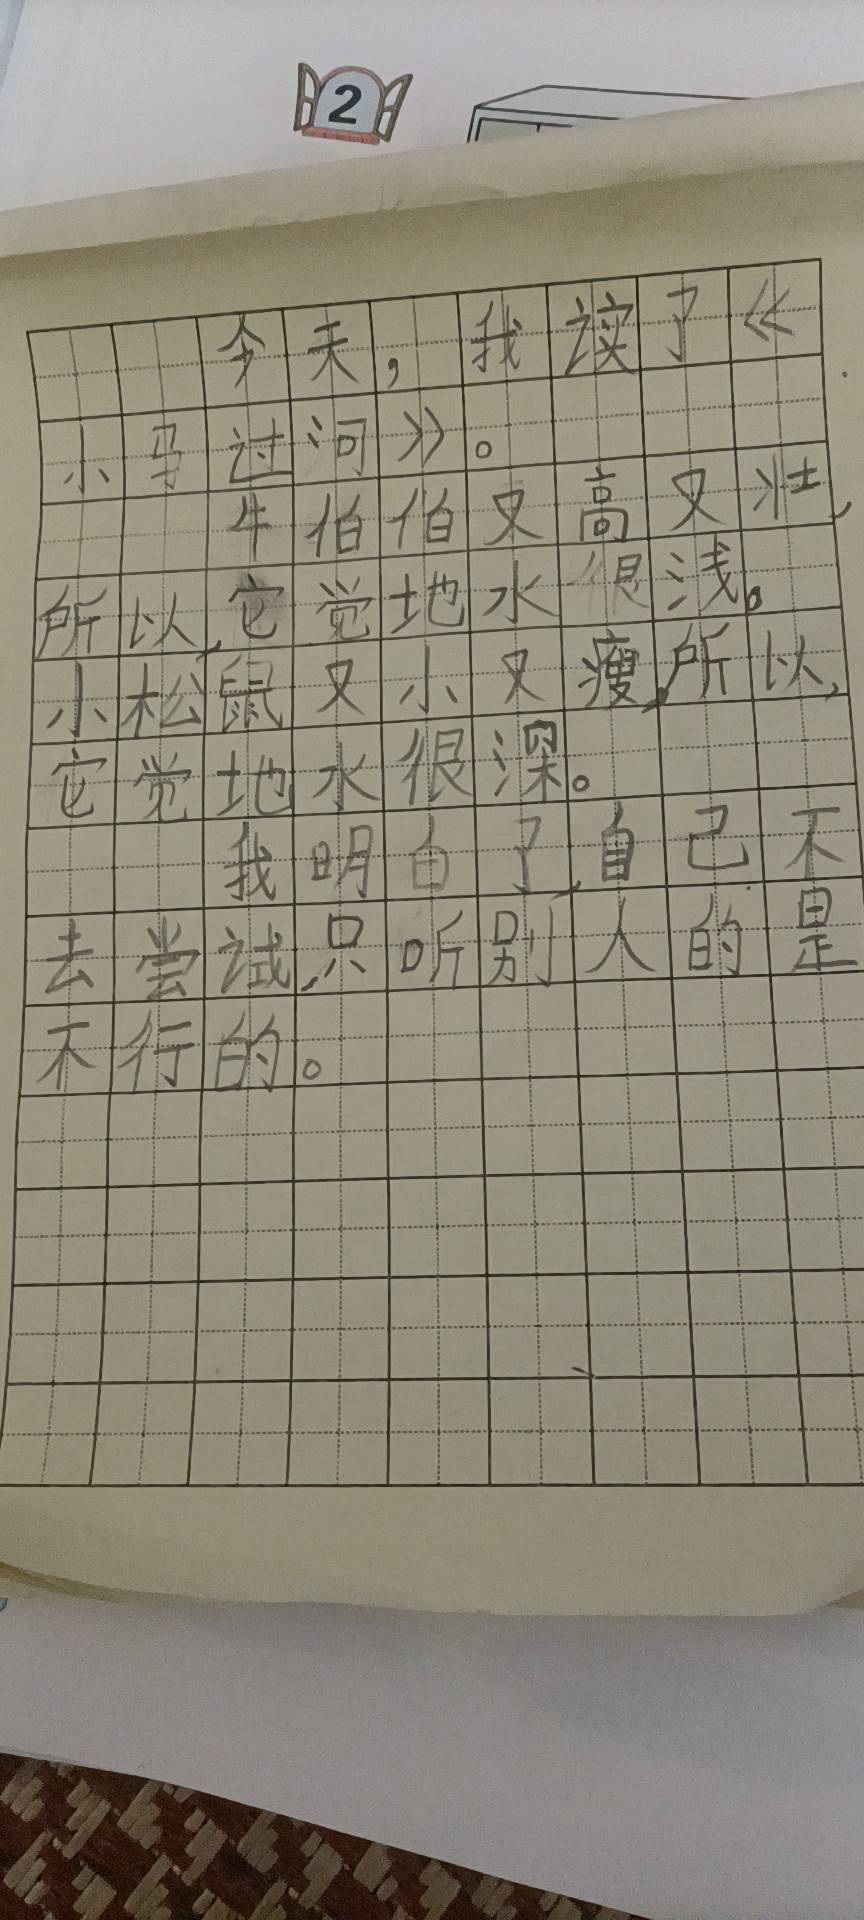 2
今天，我读了《
小马过河》。
牛伯伯又高又壮，
所以，它觉地水很浅。
小松鼠又小又瘦，所以，
它觉地水很深。
我明白了，自己不
去尝试，只听别人的是
不行的。